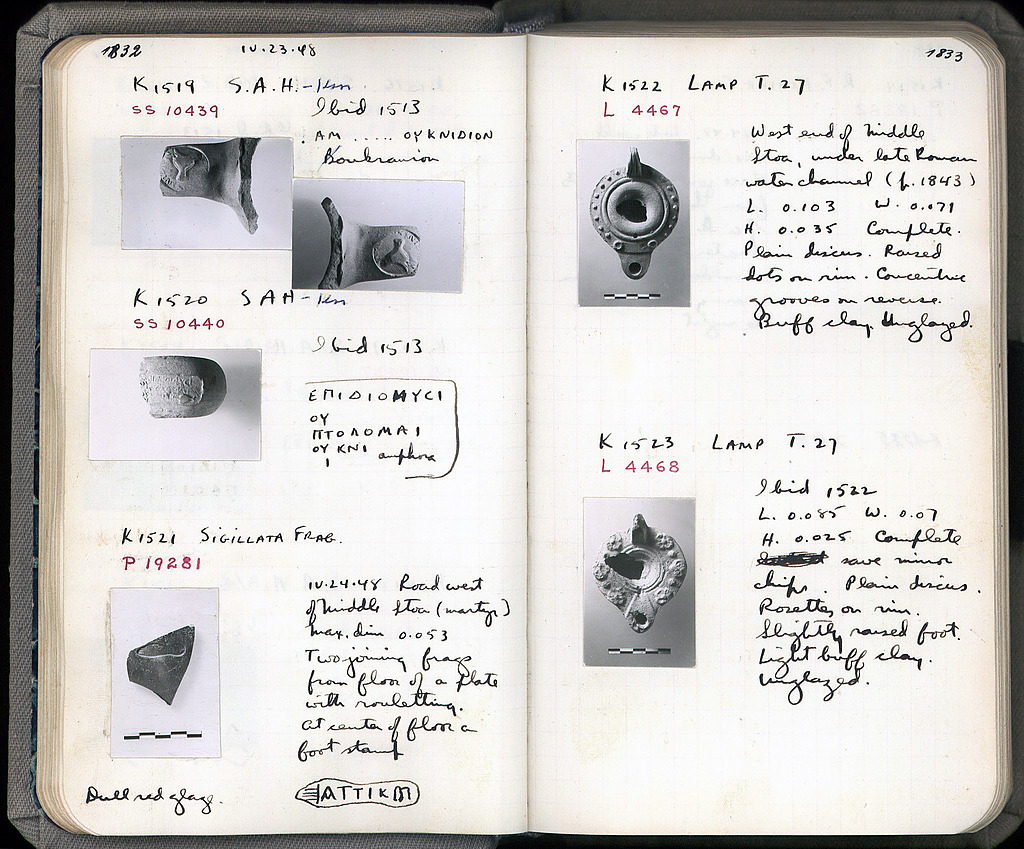 1832
IV.23.48
K 1519 S.A.H.-Kn
SS 10439
Ibid 1513
AM ..... OYKNIDION
Boukranion
K 1520 SAH-Kn
SS 10440
Ibid 1513
ΕΠΙΔΙΟΝΥCΙ
ΟΥ
ΠΤΟΛΟΜΑΙ
ΟΥ ΚΝΙ amphora
Ι
K 1521 SIGILLATA FRAG.
P 19281
IV.24.48 Road west
of Middle Stoa (martyr)
Max. dim 0.053
Two joining frags
from floor of a plate
with rouletting.
At center of floor a
foot stamp
Dull red glaze.
ATTIKOY
1833
K 1522 LAMP T. 27
L 4467
West end of Middle
Stoa, under late Roman
water channel (p. 1843)
L. 0.103 W. 0.071
H. 0.035 Complete.
Plain discus. Raised
dots on rim. Concentric
grooves on reverse.
Buff clay. Unglazed.
K 1523 LAMP T. 27
L 4468
Ibid 1522
L. 0.085 W. 0.07
H. 0.025 Complete
save minor
chips. Plain discus.
Rosettes on rim.
Slightly raised foot.
Light buff clay.
Unglazed.